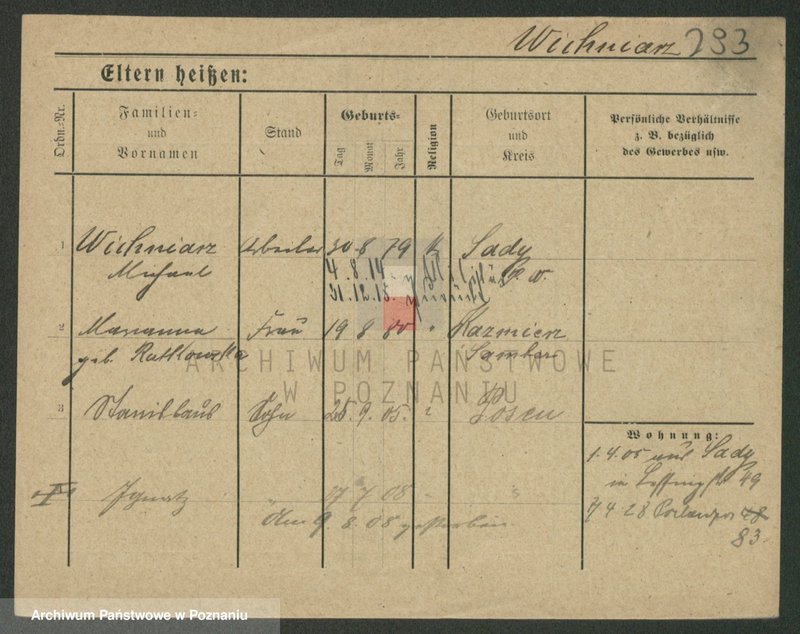 Wichniarz 793
Eltern heißen:
Ordn.-Nr.
Familien- und Vornamen
Stand
Geburts-
Tag
Monat
Jahr
Religion
Geburtsort und Kreis
Persönliche Verhältnisse
z. B. bezüglich
des Gewerbes usw.
1 Wichniarz Arbeiter 30 8 79 k Sady
Michael P. W.
4.8.14
31.12.18. zurück
2 Marianna Frau 19 8 80 " Kazmierz
geb. Ratkowska Samter
3 Stanislaus Sohn 25. 9. 05. Posen
Wohnung:
1.4.05 aus Sady
in 49
Ignatz " 17 7 08 "
den 9 8. 08 gestorben
7 4 28
83
ARCHIWUM PAŃSTWOWE
W POZNANIU
Archiwum Państwowe w Poznaniu